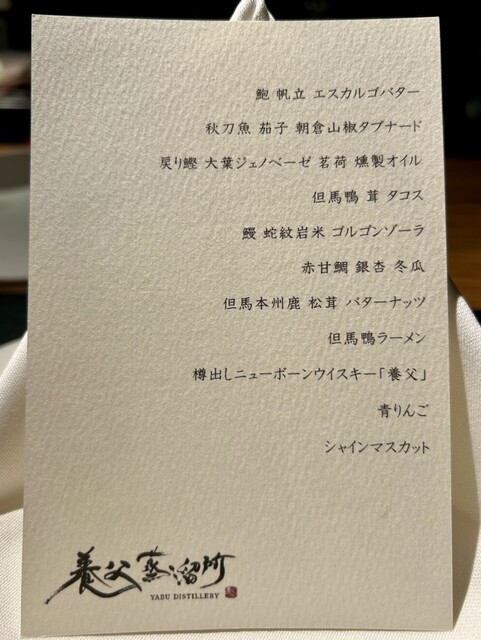 鮑 帆立 エスカルゴバター
秋刀魚 茄子 朝倉山椒タプナード
戻り鰹 大葉ジェノベーゼ 茗荷 燻製オイル
但馬鴨 茸 タコス
鰻 蛇紋岩米 ゴルゴンゾーラ
赤甘鯛 銀杏 冬瓜
但馬本州鹿 松茸 バターナッツ
但馬鴨ラーメン
樽出しニューボーンウイスキー「養父」
青りんご
シャインマスカット
養父蒸溜所
YABU DISTILLERY